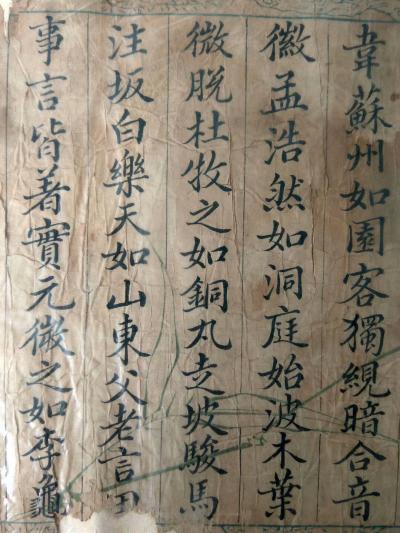 韋蘇州如園客獨繭暗合音
徽孟浩然如洞庭始波木葉
微脫杜牧之如銅丸走坡駿馬
注坂白樂天如山東父老言
事言皆著實元微之如李龜